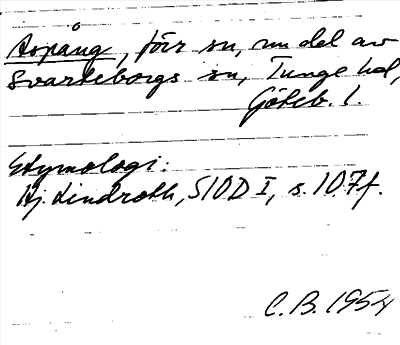 Aspång, förr sn, nu del av
Svarteborgs sn, Tunge hd,
Göteb. l.
Etymologi:
Hj. Lindroth, SIOD I, s. 107f.
C.B. 1954